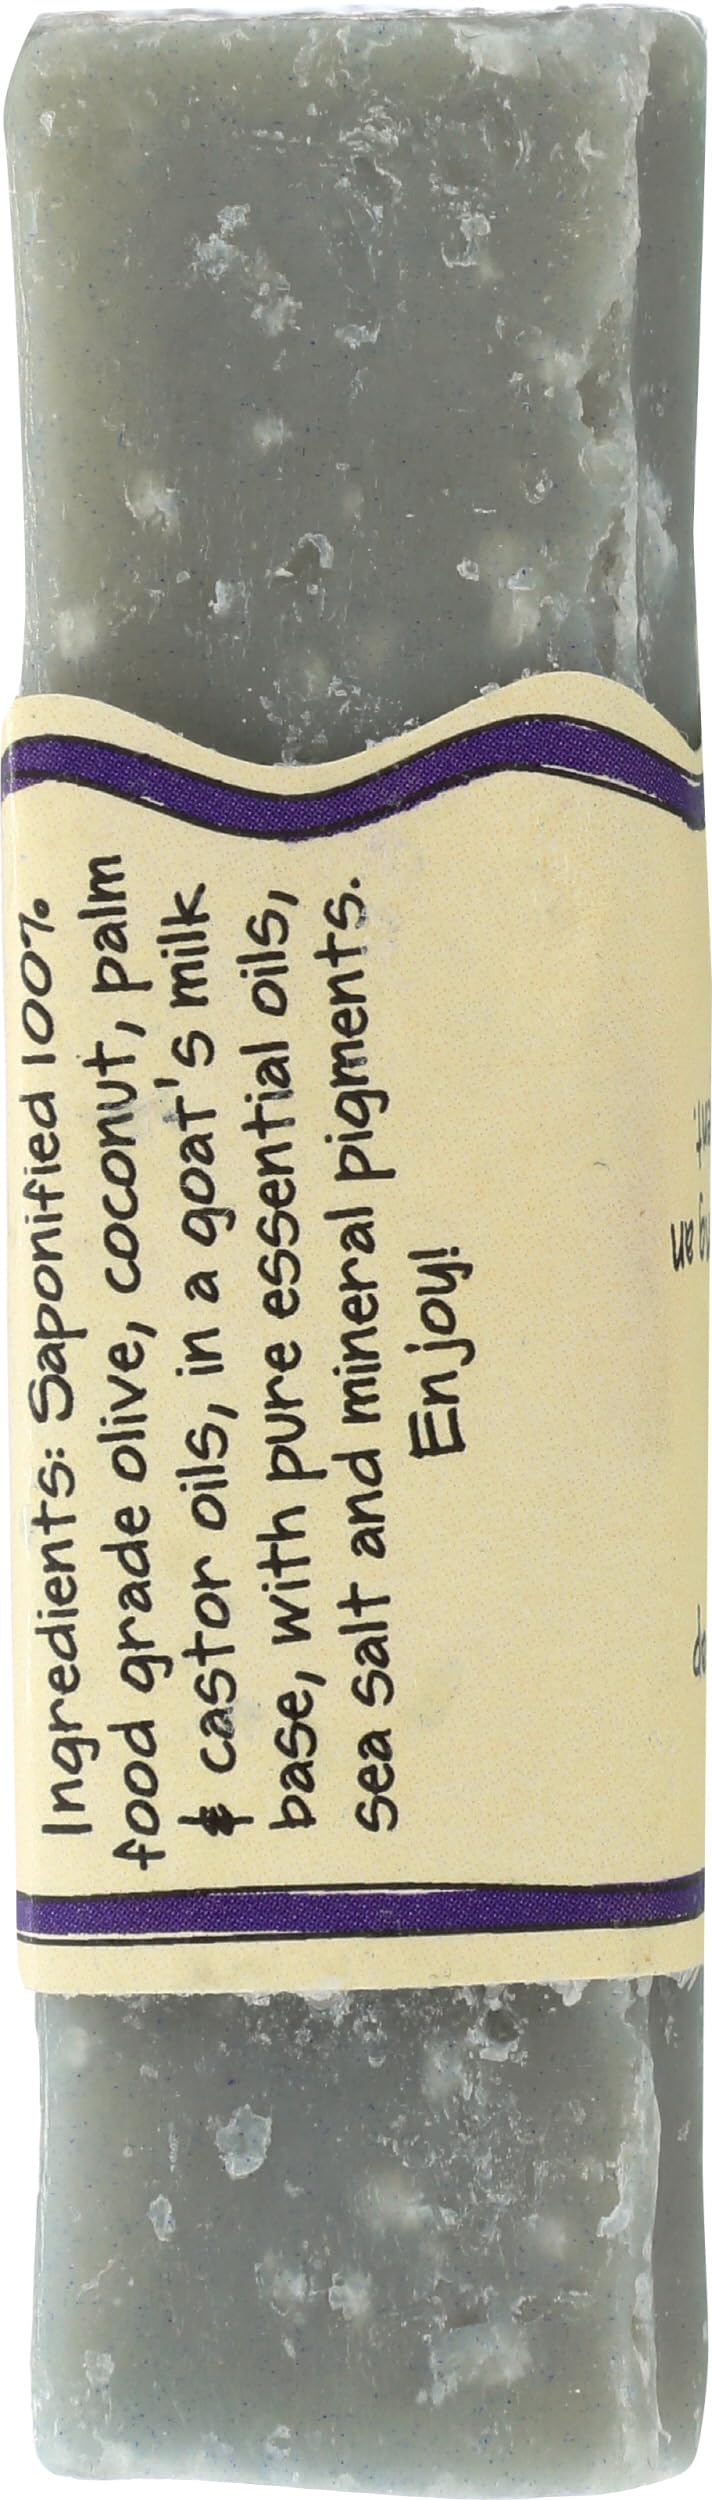 Ingredients: Saponified 100%
food grade olive, coconut, palm
& castor oils, in a goat's milk
base, with pure essential oils,
sea salt and mineral pigments.
Enjoy!